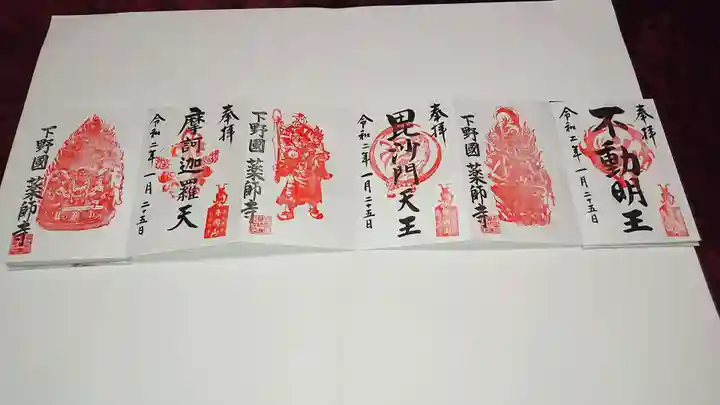 奉拝
不動明王
令和二年一月二十五日
下野國 薬師寺
奉拝
毘沙門天王
令和二年一月二十五日
下野國 薬師寺
奉拝
摩訶迦羅天
令和二年一月二十五日
下野國 薬師寺